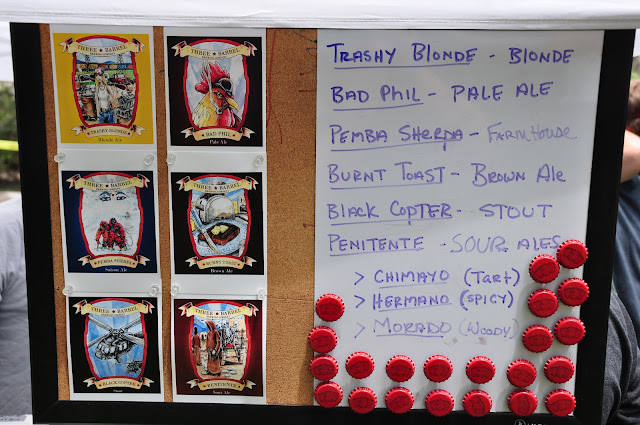 THREE ★ BARREL
BREWING COMPANY
TRASHY BLONDE
Blonde Ale
THREE ★ BARREL
BREWING COMPANY
BAD PHIL
Pale Ale
THREE ★ BARREL
BREWING COMPANY
PEMBA SHERPA
Saison Ale
THREE ★ BARREL
BREWING COMPANY
BURNT TOAST
Brown Ale
THREE ★ BARREL
BREWING COMPANY
BLACK COPTER
Stout
THREE ★ BARREL
BREWING COMPANY
PENITENTE
Sour Ale
TRASHY BLONDE - BLONDE
BAD PHIL - PALE ALE
PEMBA SHERPA - FARMHOUSE
BURNT TOAST - BROWN ALE
BLACK COPTER - STOUT
PENITENTE - SOUR ALES
> CHIMAYO (Tart)
> HERMANO (SPICY)
> MORADO (WOODY)